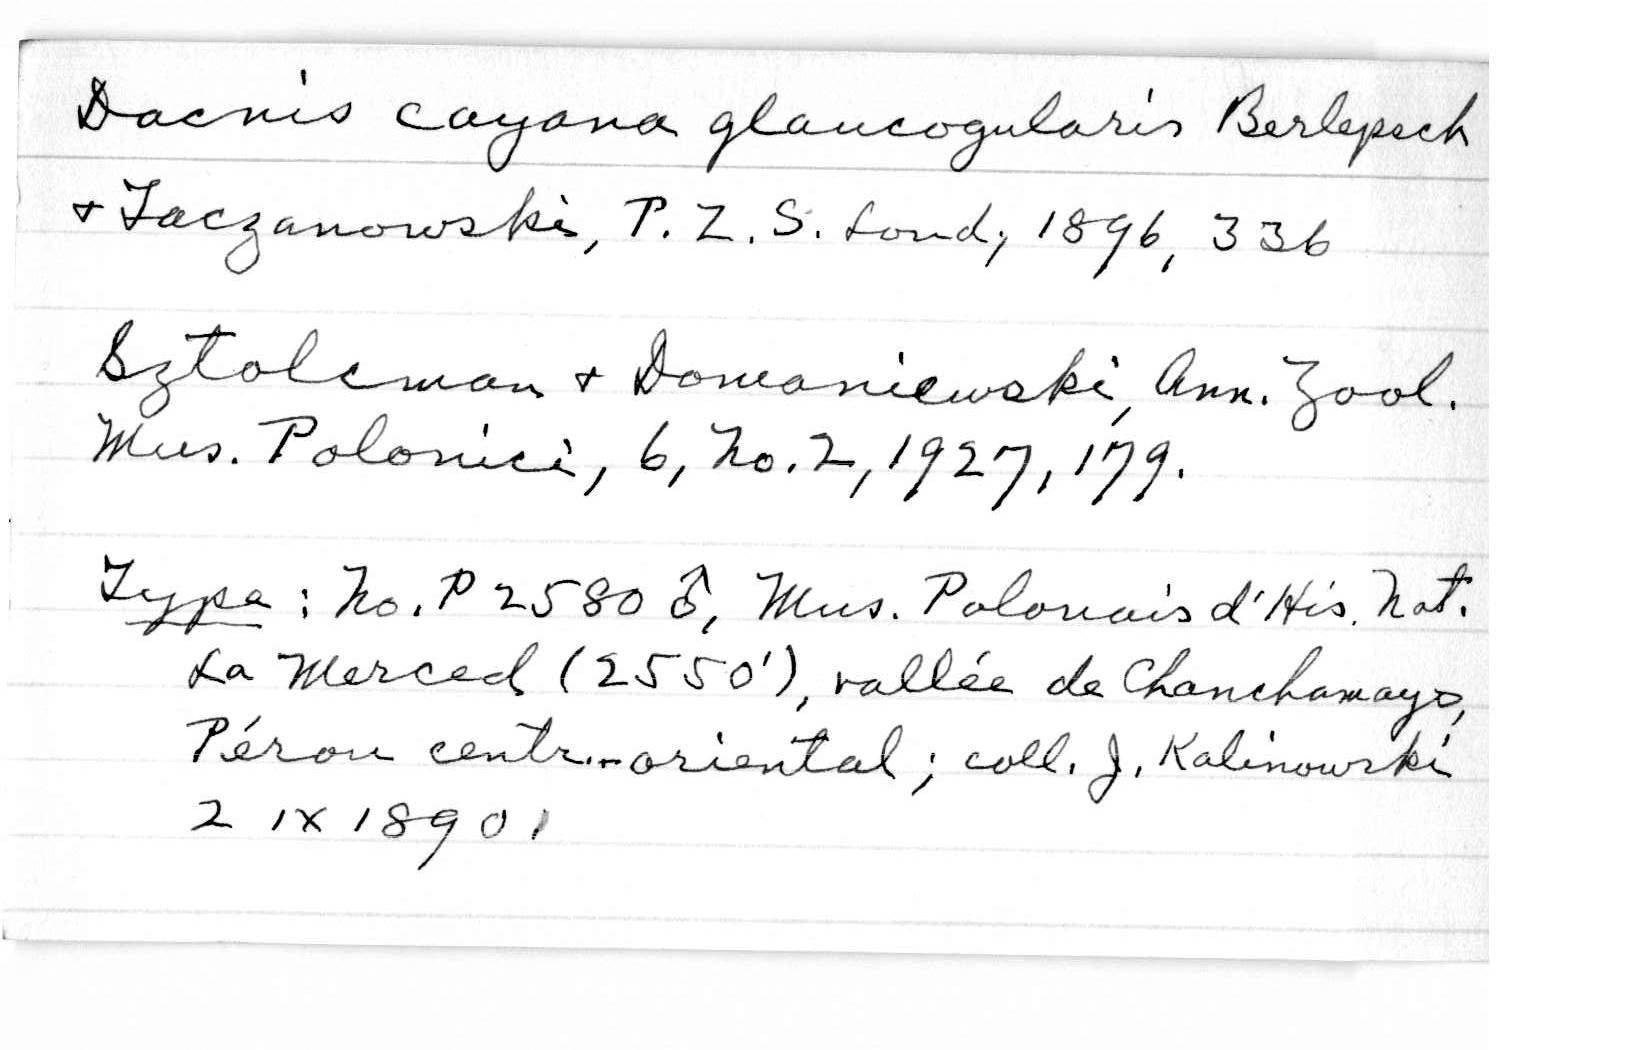 Dacnis cayana glaucogularis Berlepsch
+ Taczanowski, P. Z. S. Lond, 1896, 336
Sztolcman + Domaniewski, Ann. Zool.
Mus. Polonici, 6, No. 2, 1927, 179.
Type: No. P 2580 ♂, Mus. Polonais d'His. Nat.
La Merced (2550'), vallée de Chanchamayo,
Pérou centr.-oriental; coll. J. Kalinowski
2 IX 1890.